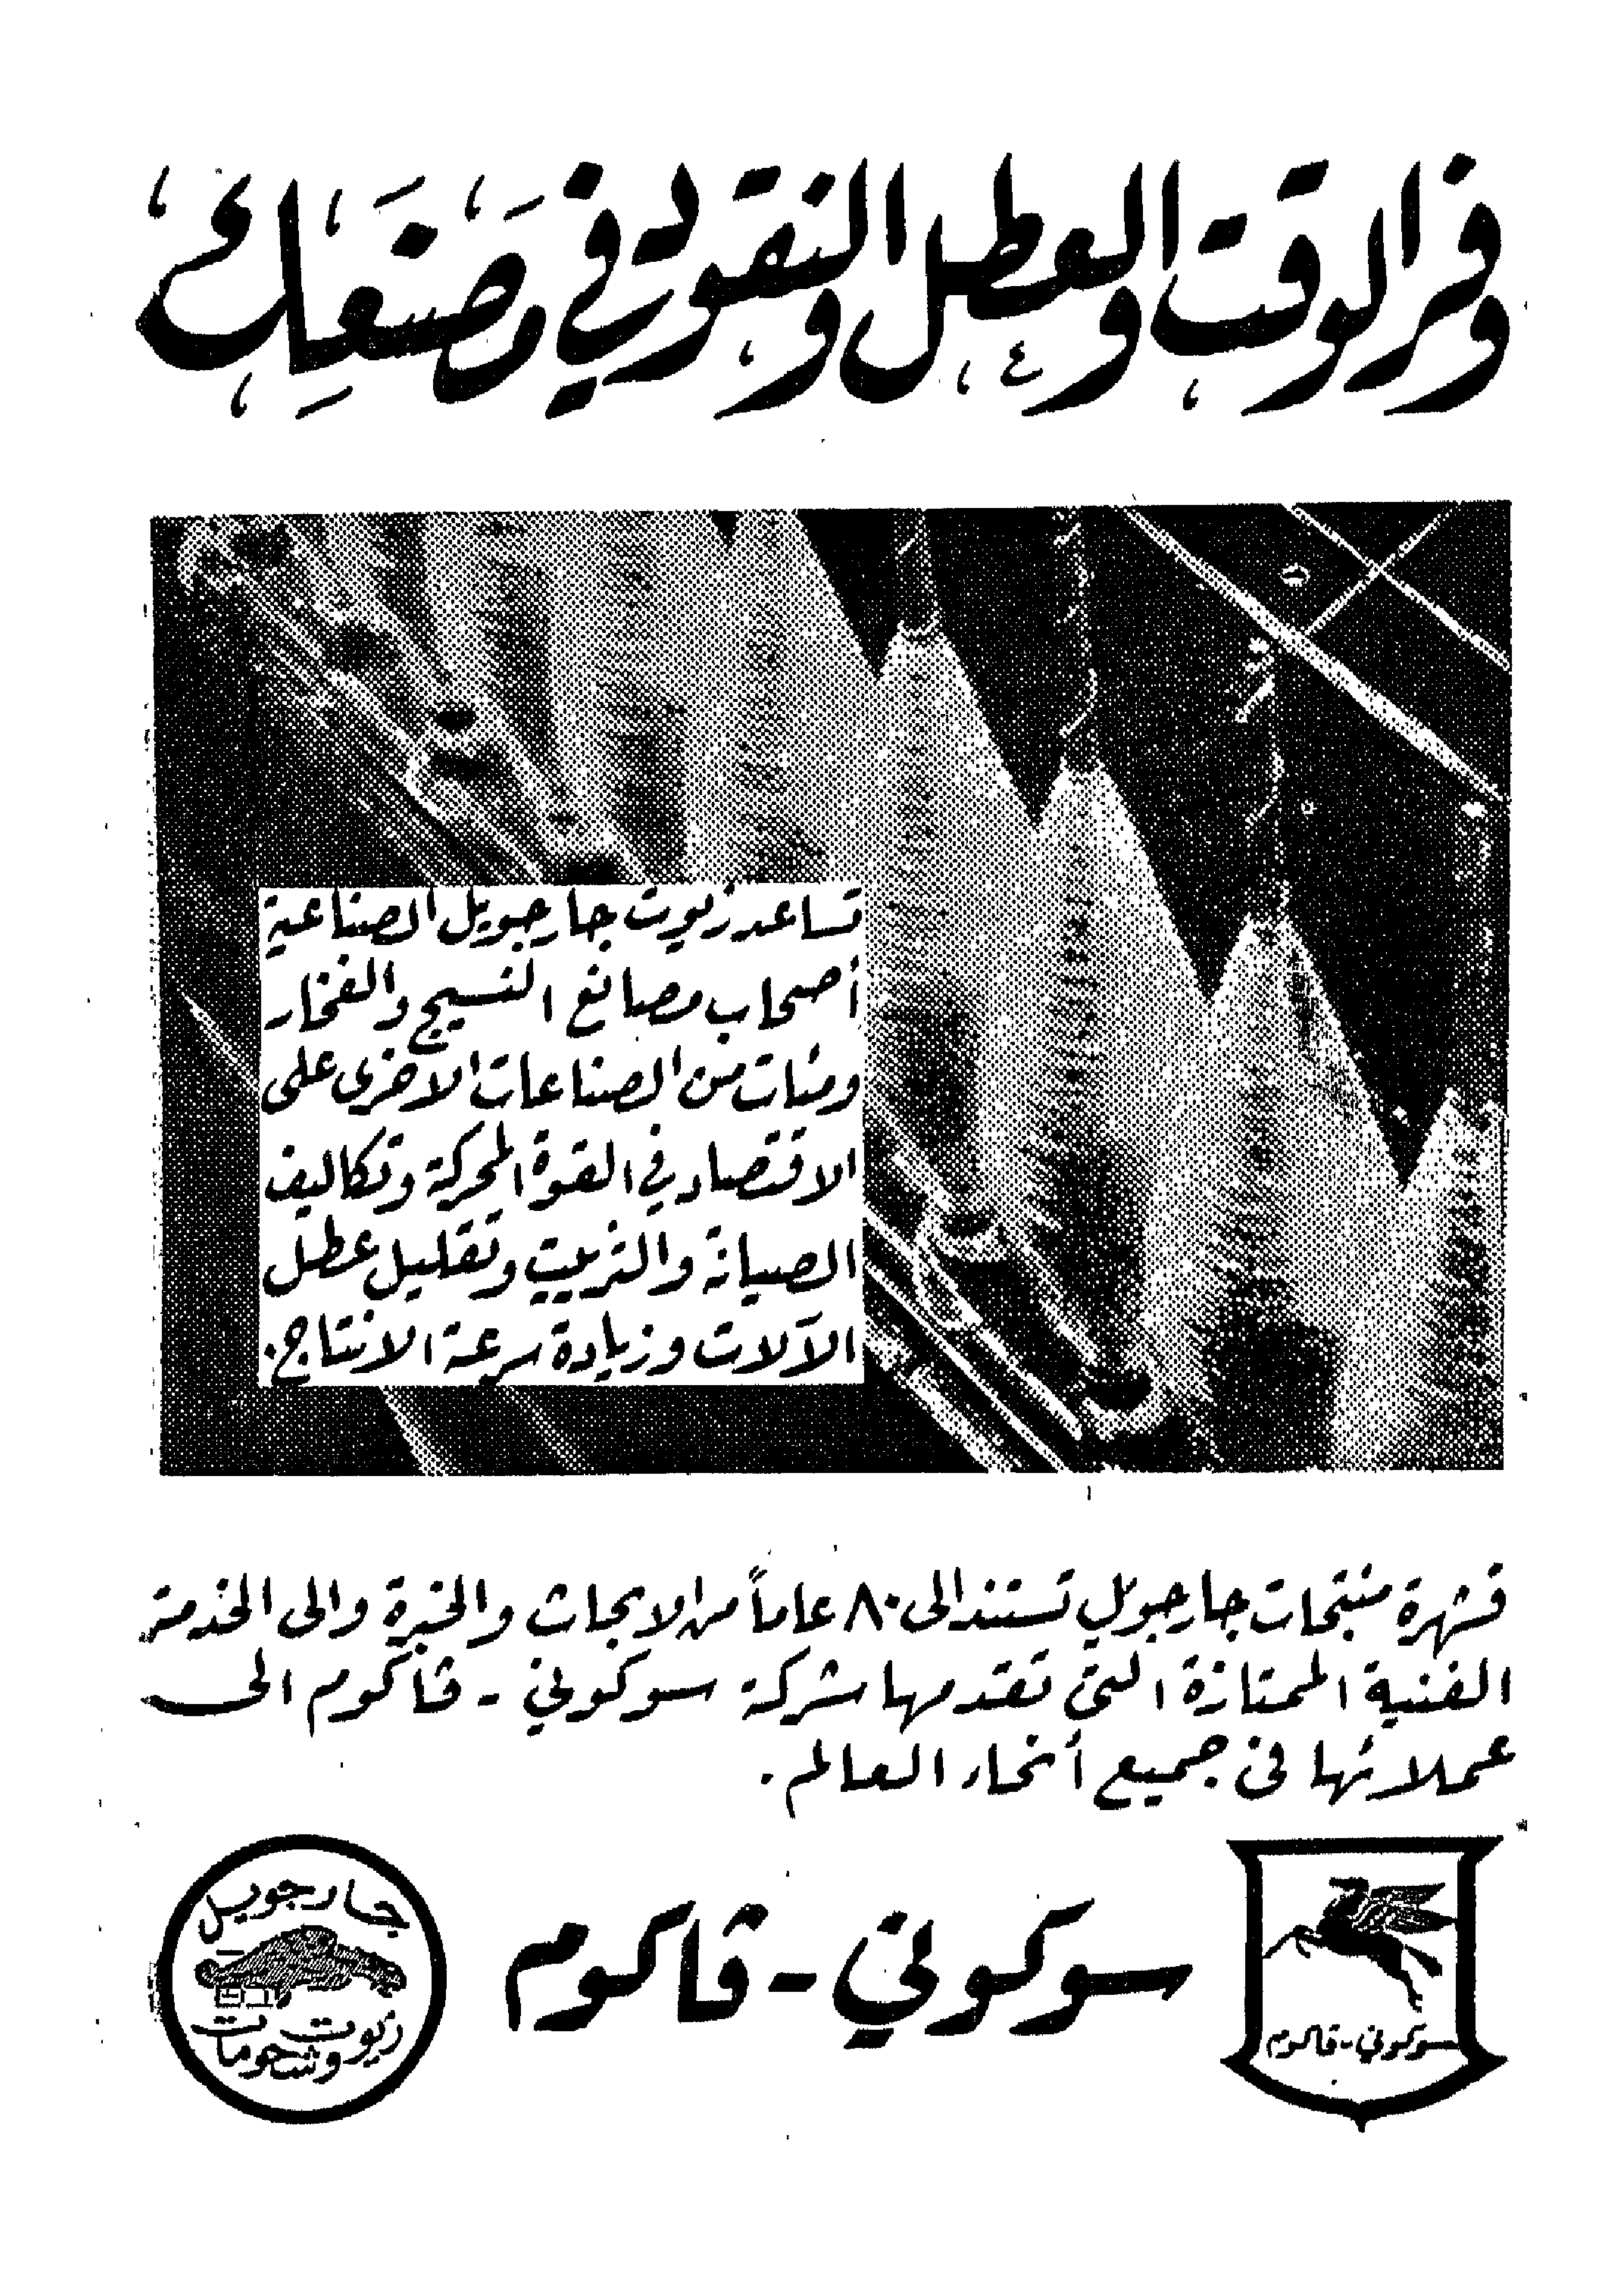 وفر الوقت والعطل والنقود في مصنعك
تساعد زيوت جارجويل الصناعية
أصحاب مصانع النسيج والفخار
ومئات من الصناعات الاخرى على
الاقتصاد في القوة المحركة وتكاليف
الصيانة والتزييت وتقليل عطل
الآلات وزيادة سرعة الانتاج.
فشهرة منتجات جارجويل تستند الى ٨٠ عاماً من الابحاث والخبرة والى الخدمة
الفنية الممتازة التى تقدمها شركة سوكوني - ڤاكوم الى
عملائها فى جميع أنحاء العالم.
سوكوني - ڤاكوم
سوكوني - ڤاكوم
جارجويل
زيوت
وشحومات